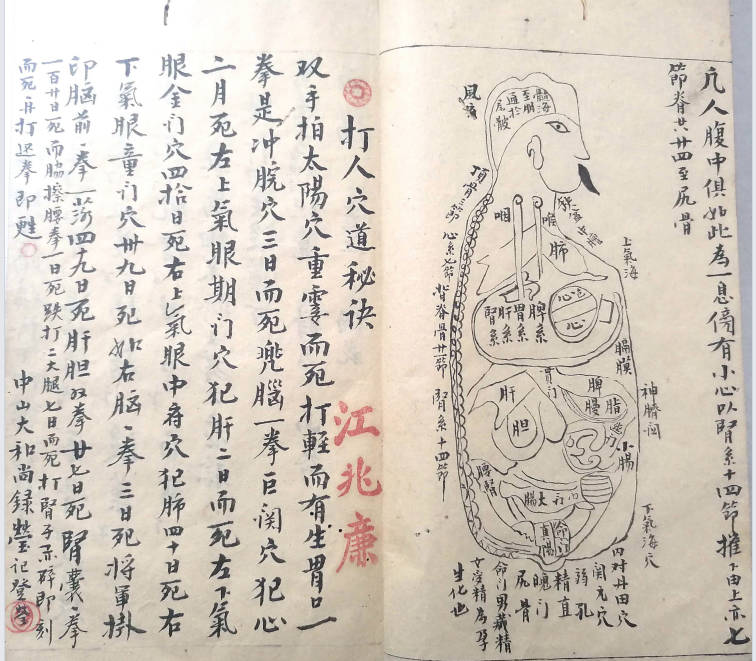 凢人腹中俱如此為一息傍有小心以腎系十四節推下由上亦七
節脊共廿四至尻骨
髓海
至腦
通於
尾骶
風府
頂骨三節
心系七節
背脊骨廿一節
腎系十四節
咽
喉
肺
上氣海
脾系
胃系
肝系
腎系
心
膈膜
神膦闕
賁门
肝
胆
脾
脂
小腸
大腸
腰腎
命门
真陽
下氣海穴
内対丹田穴
関元穴
精直
魄门
尻骨
命门男藏精
女受精為孕
生化也
打人穴道秘诀
江兆廉
双手拍太陽穴重霎而死打軽而有生胃口一
拳是冲脘穴三日而死兠腦一拳巨闵穴犯心
二月死左上氣眼期门穴犯肝二日而死左下氣
眼金门穴四拾日死右上氣眼中府穴犯肺四十日死右
下氣眼童门穴卅九日死如右脑一拳三日死将軍掛
印脑前一拳一苐四十九日死肝胆双拳廿七日死腎囊一拳
一百廿日死而脇擦腰拳一日死跌打二大腿七日而死打腎子亦碎即刻
而死再打迟拳即甦
中山大和尚録瑩记登